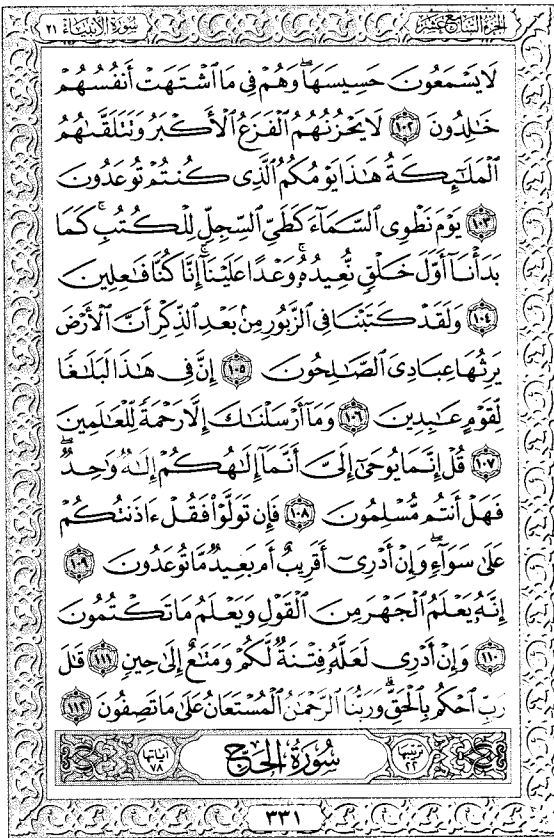 الجزء السابع عشر
سورة الأنبياء ٢١
لَا يَسْمَعُونَ حَسِيسَهَا ۖ وَهُمْ فِى مَا ٱشْتَهَتْ أَنفُسُهُمْ
خَـٰلِدُونَ ١٠٢ لَا يَحْزُنُهُمُ ٱلْفَزَعُ ٱلْأَكْبَرُ وَتَتَلَقَّىٰهُمُ
ٱلْمَلَـٰٓئِكَةُ هَـٰذَا يَوْمُكُمُ ٱلَّذِى كُنتُمْ تُوعَدُونَ
١٠٣ يَوْمَ نَطْوِى ٱلسَّمَآءَ كَطَىِّ ٱلسِّجِلِّ لِلْكُتُبِ ۚ كَمَا
بَدَأْنَآ أَوَّلَ خَلْقٍ نُّعِيدُهُۥ ۚ وَعْدًا عَلَيْنَآ ۚ إِنَّا كُنَّا فَـٰعِلِينَ
١٠٤ وَلَقَدْ كَتَبْنَا فِى ٱلزَّبُورِ مِنۢ بَعْدِ ٱلذِّكْرِ أَنَّ ٱلْأَرْضَ
يَرِثُهَا عِبَادِىَ ٱلصَّـٰلِحُونَ ١٠٥ إِنَّ فِى هَـٰذَا لَبَلَـٰغًا
لِّقَوْمٍ عَـٰبِدِينَ ١٠٦ وَمَآ أَرْسَلْنَـٰكَ إِلَّا رَحْمَةً لِّلْعَـٰلَمِينَ
١٠٧ قُلْ إِنَّمَا يُوحَىٰٓ إِلَىَّ أَنَّمَآ إِلَـٰهُكُمْ إِلَـٰهٌ وَٰحِدٌ ۖ
فَهَلْ أَنتُم مُّسْلِمُونَ ١٠٨ فَإِن تَوَلَّوْا۟ فَقُلْ ءَاذَنتُكُمْ
عَلَىٰ سَوَآءٍ ۖ وَإِنْ أَدْرِىٓ أَقَرِيبٌ أَم بَعِيدٌ مَّا تُوعَدُونَ ١٠٩
إِنَّهُۥ يَعْلَمُ ٱلْجَهْرَ مِنَ ٱلْقَوْلِ وَيَعْلَمُ مَا تَكْتُمُونَ
١١٠ وَإِنْ أَدْرِى لَعَلَّهُۥ فِتْنَةٌ لَّكُمْ وَمَتَـٰعٌ إِلَىٰ حِينٍ ١١١ قَـٰلَ
رَبِّ ٱحْكُم بِٱلْحَقِّ ۗ وَرَبُّنَا ٱلرَّحْمَـٰنُ ٱلْمُسْتَعَانُ عَلَىٰ مَا تَصِفُونَ ١١٢
ترتيبها ٢٢ سُورَةُ الحَجّ آياتها ٧٨
٣٣١